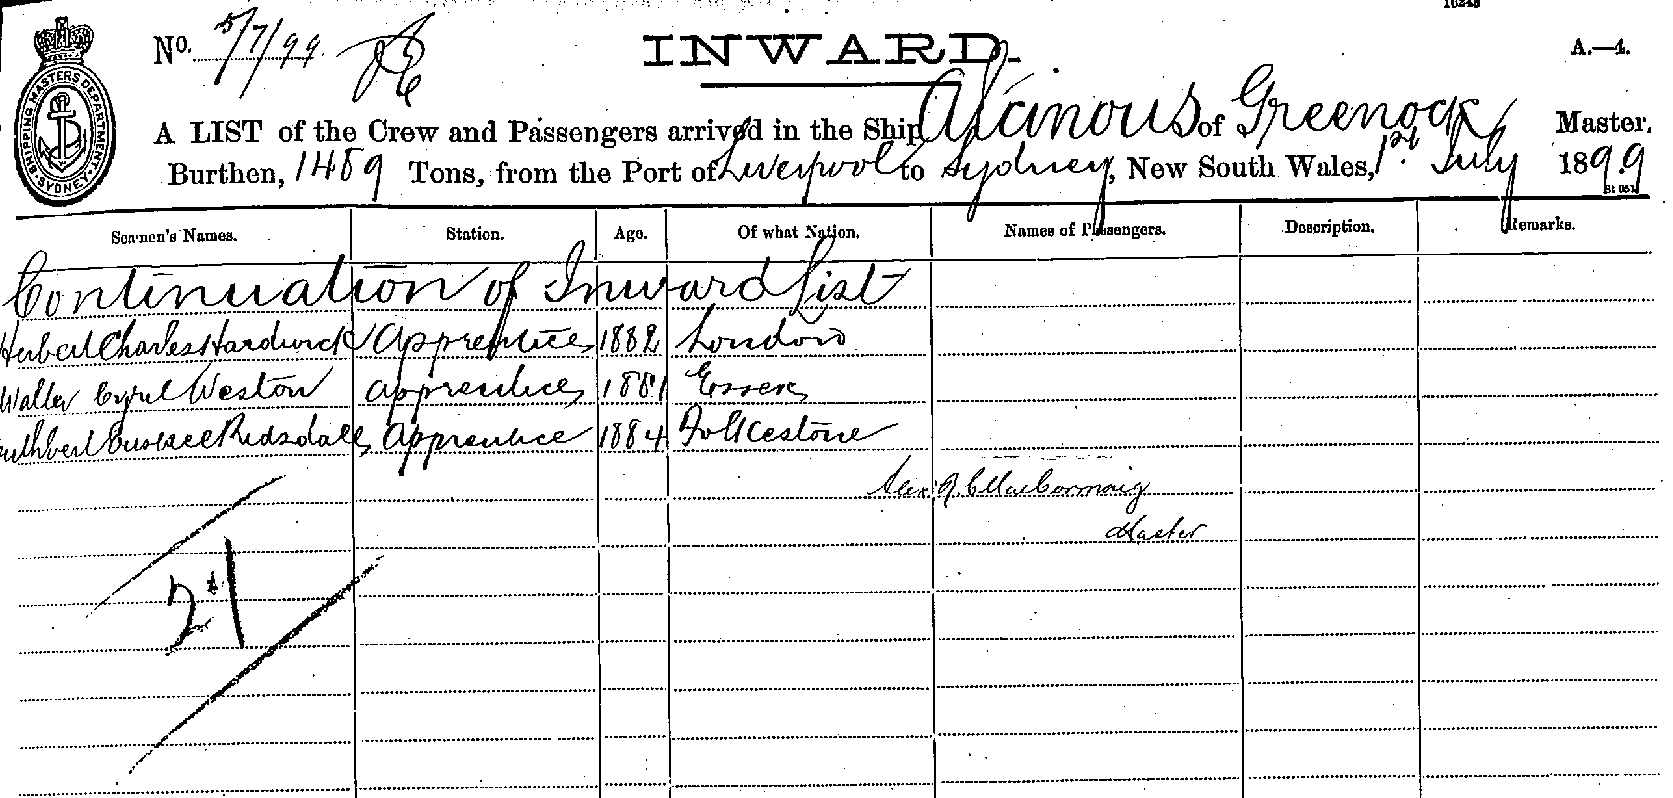 10243
No. 5/7/99
INWARD.
A.—4.
SHIPPING MASTERS DEPARTMENT SYDNEY
A LIST of the Crew and Passengers arrived in the Ship Alcinous of Greenock Master,
Burthen, 1489 Tons, from the Port of Liverpool to Sydney, New South Wales, 1st July 1899
Seamen's Names. Station. Age. Of what Nation. Names of Passengers. Description. Remarks.
Continuation of Inward List
Herbert Charles Hardwick Apprentice 1882 London
Walter Cyril Weston Apprentice 1881 Essex
Cuthbert Ridsdale Apprentice 1884 Folkestone
Alex.
Master
21